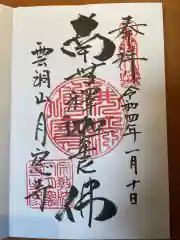 奉拝
令和四年一月十日
南無釋迦牟尼佛
雲洞山月窓寺